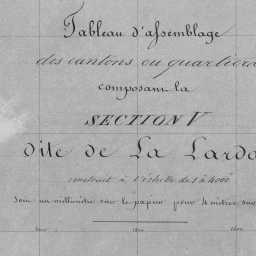 Tableau d'assemblage
des cantons ou quartiers
composant la
SECTION V
dite de La Lard
construit à l'échelle de 1 à 4000
Soit un millimètre sur le papier pour 4 mètres sur